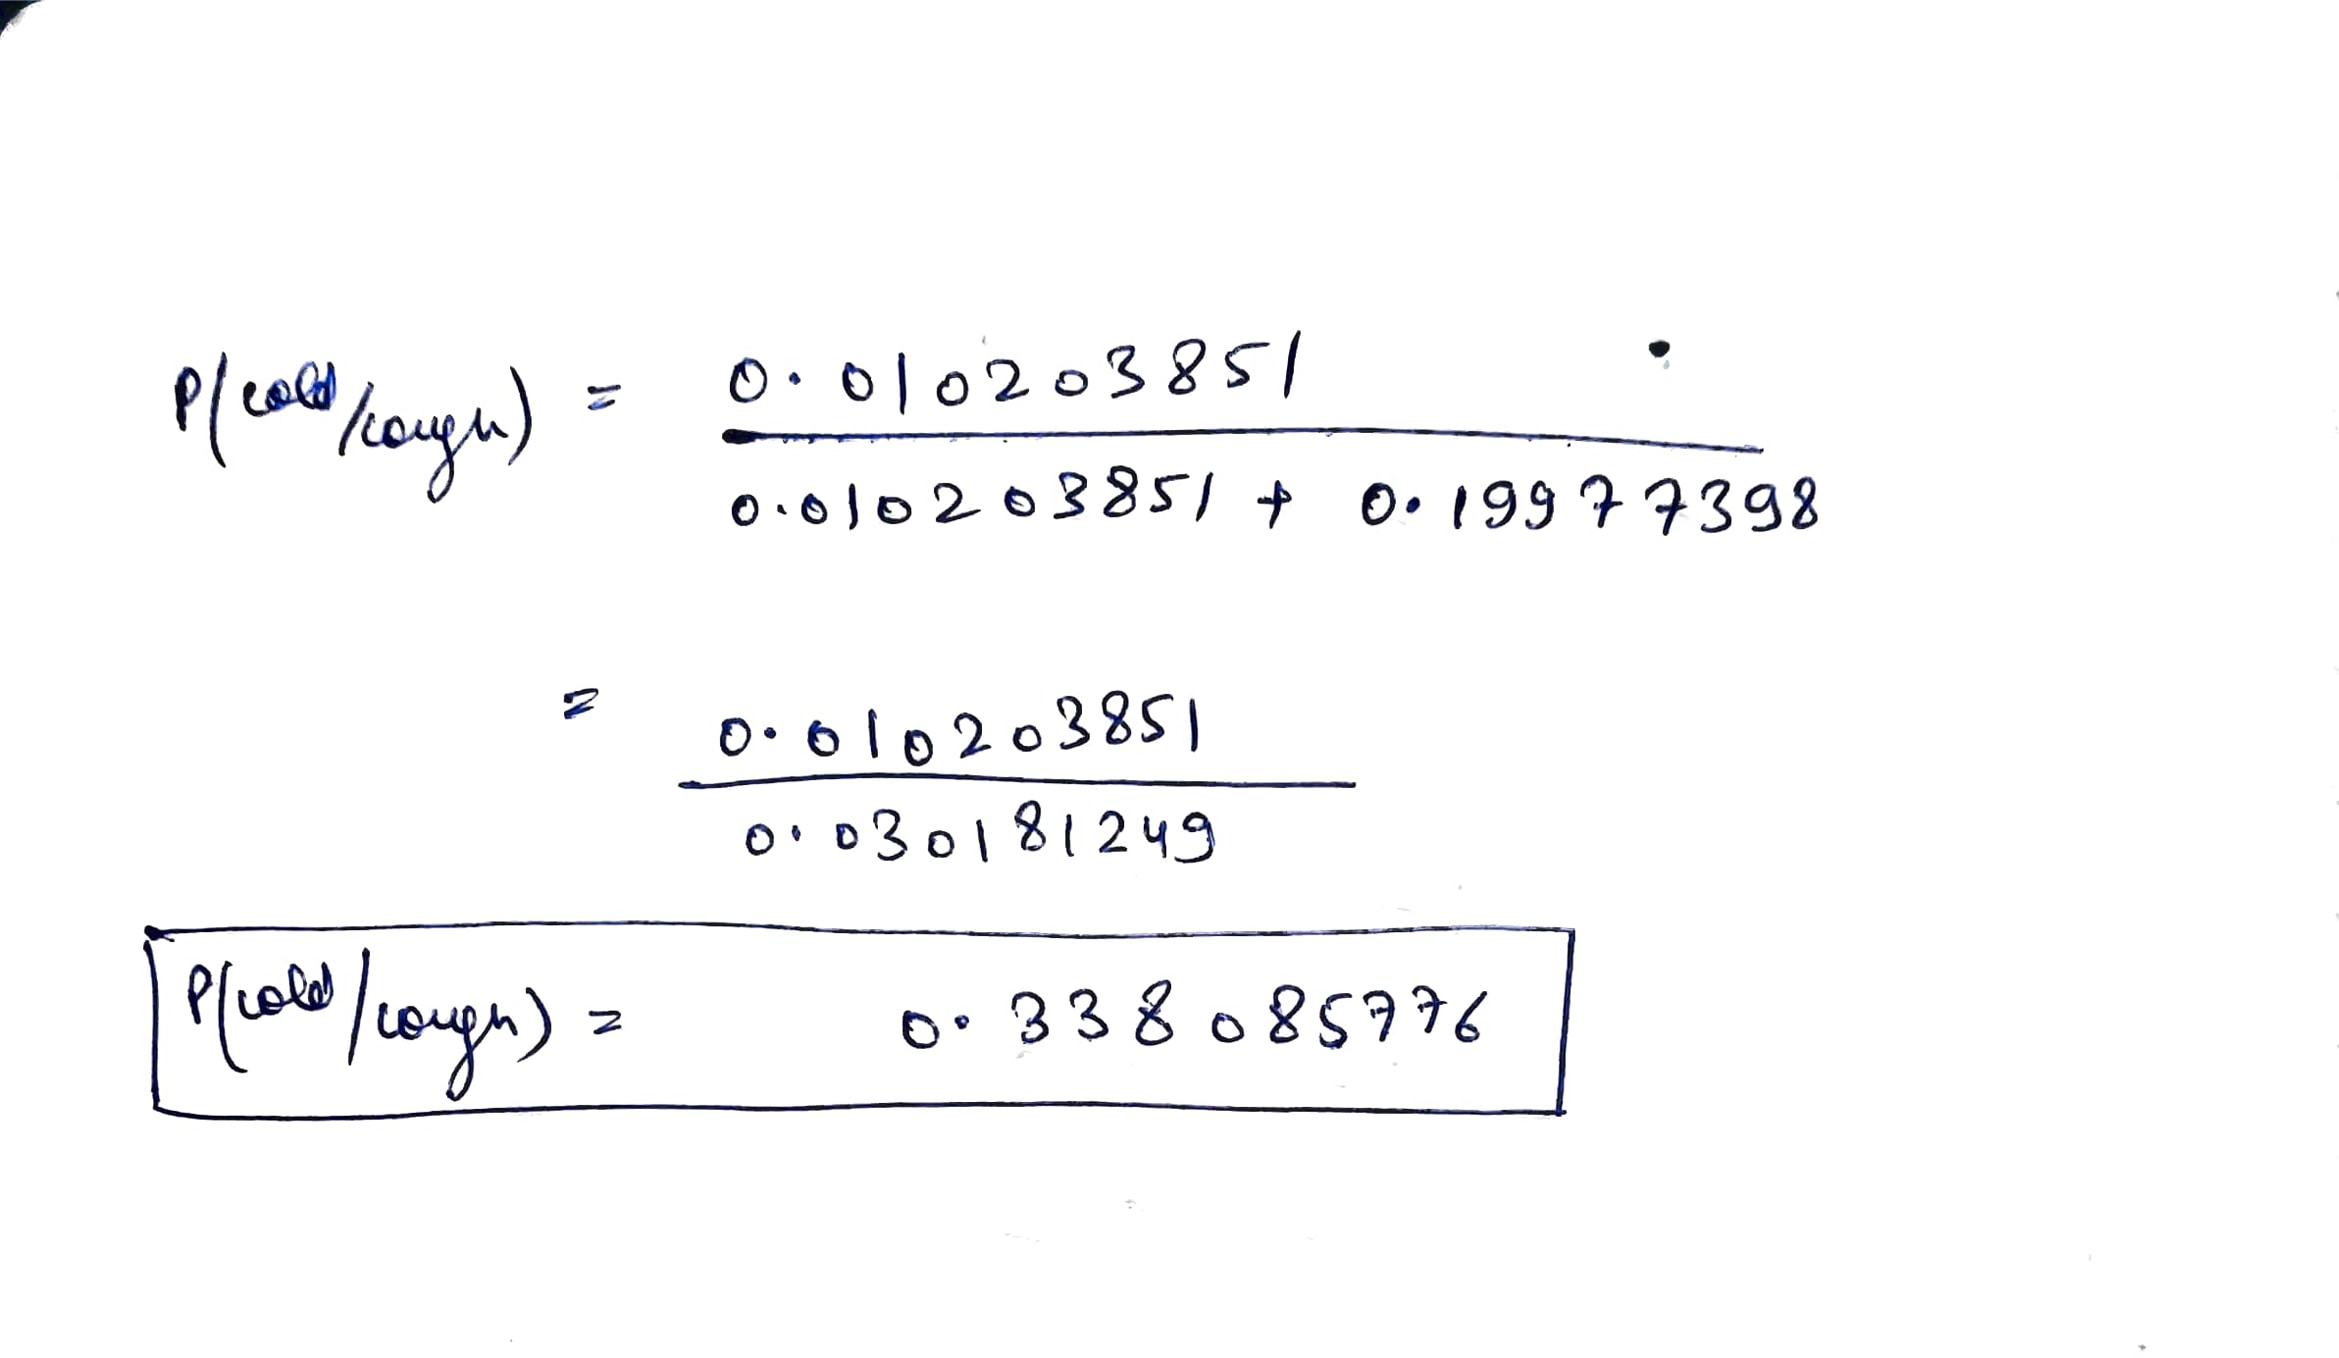 P(cold/cough) = 0.010203851
0.010203851 + 0.19977398
= 0.010203851
0.030181249
P(cold/cough) = 0.338085776